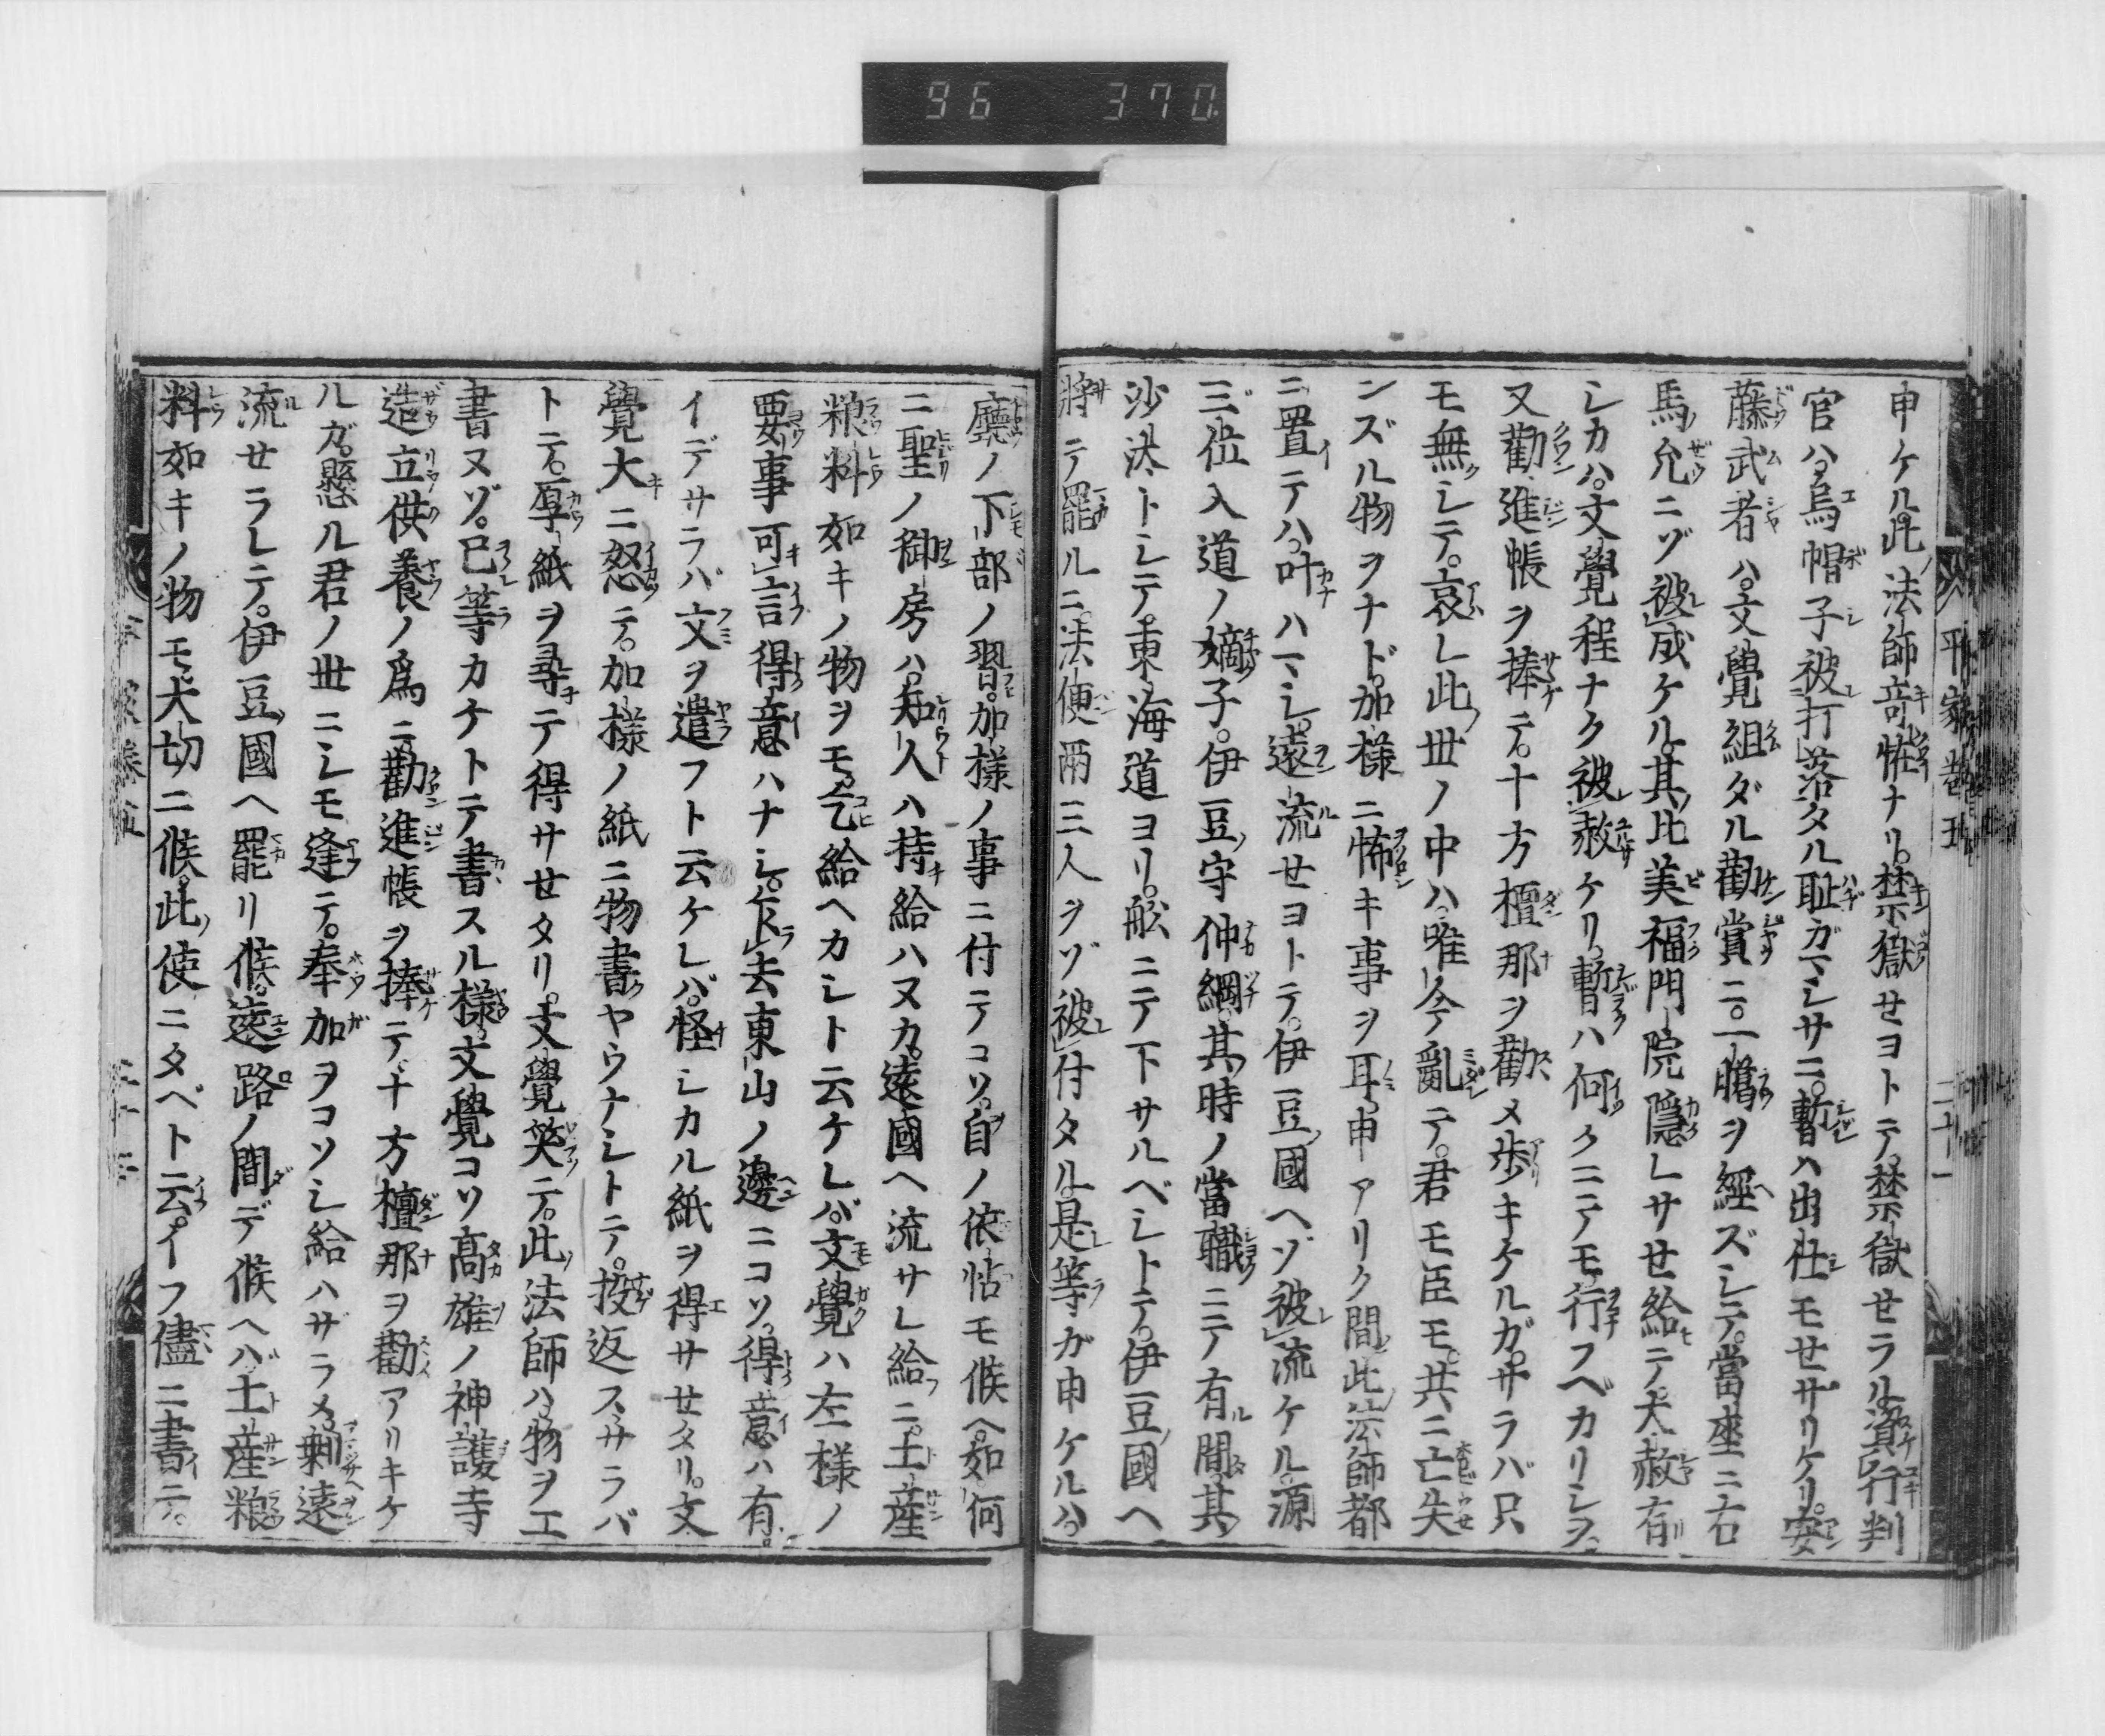 96 370
申ケル此法師奇恠ナリ。禁獄セヨトテ。禁獄セラル。資行判
官ハ烏帽子被打落タル耻ガマシサニ。暫ハ出仕モセサリケリ。安
藤武者ハ。文覺組ダル勸賞ニ。一臈ヲ經ズシテ。當座ニ右
馬允ニゾ被成ケル。其比美福門院隱レサせ給テ。大赦有
シカハ。文覺程ナク被赦ケリ。暫ハ何クニテモ行フベカリシヲ。
又勸進帳ヲ捧テ。十方檀那ヲ勸メ歩キケルガ。サラバ只
モ無シテ。哀レ此世ノ中ハ。唯今亂テ。君モ臣モ。共ニ亡失
ンズル物ヲナド。加樣ニ怖キ事ヲ耳申アリク間。此法師都
ニ置テハ。叶ハマシ。遠流せヨトテ。伊豆國ヘゾ被流ケル。源
三位入道ノ嫡子。伊豆守仲綱。其時ノ當職ニテ有間。其
沙汰トシテ。東海道ヨリ。舩ニテ下サルベシトテ。伊豆國ヘ
將テ罷ルニ。法便兩三人ヲゾ被付タル。是等ガ申ケルハ。
廳ノ下部ノ習。加樣ノ事ニ付テコソ。自ノ依怙モ候ヘ。如何
ニ聖ノ御房ハ。知人ハ持給ハヌカ。遠國ヘ流サレ給ニ。土産
粮料如キノ物ヲモ。乞給ヘカシト云ケレバ。文覺ハ左樣ノ
要事可言得意ハナシ。乍去東山ノ邊ニコソ。得意ハ有。
イデサラバ文ヲ遣フト云ケレバ。怪シカル紙ヲ得サせタリ。文
覺大ニ怒テ。加樣ノ紙ニ物書ヤウナシトテ。投返ス。サラバ
トテ。厚紙ヲ尋テ得サせタリ。文覺笑テ。此法師ハ。物ヲエ
書ヌゾ。己等カケトテ書スル樣。文覺コソ高雄ノ神護寺
造立供養ノ爲ニ。勸進帳ヲ捧テ。十方檀那ヲ勸アリキケ
ルガ。懸ル君ノ世ニシモ逢テ。奉加ヲコソシ給ハザラメ。剰遠
流せラレテ。伊豆國ヘ罷リ候。遠路ノ間デ候ヘハ。土産粮
料如キノ物モ。大切ニ候。此使ニタベト云。イフ儘ニ書テ。